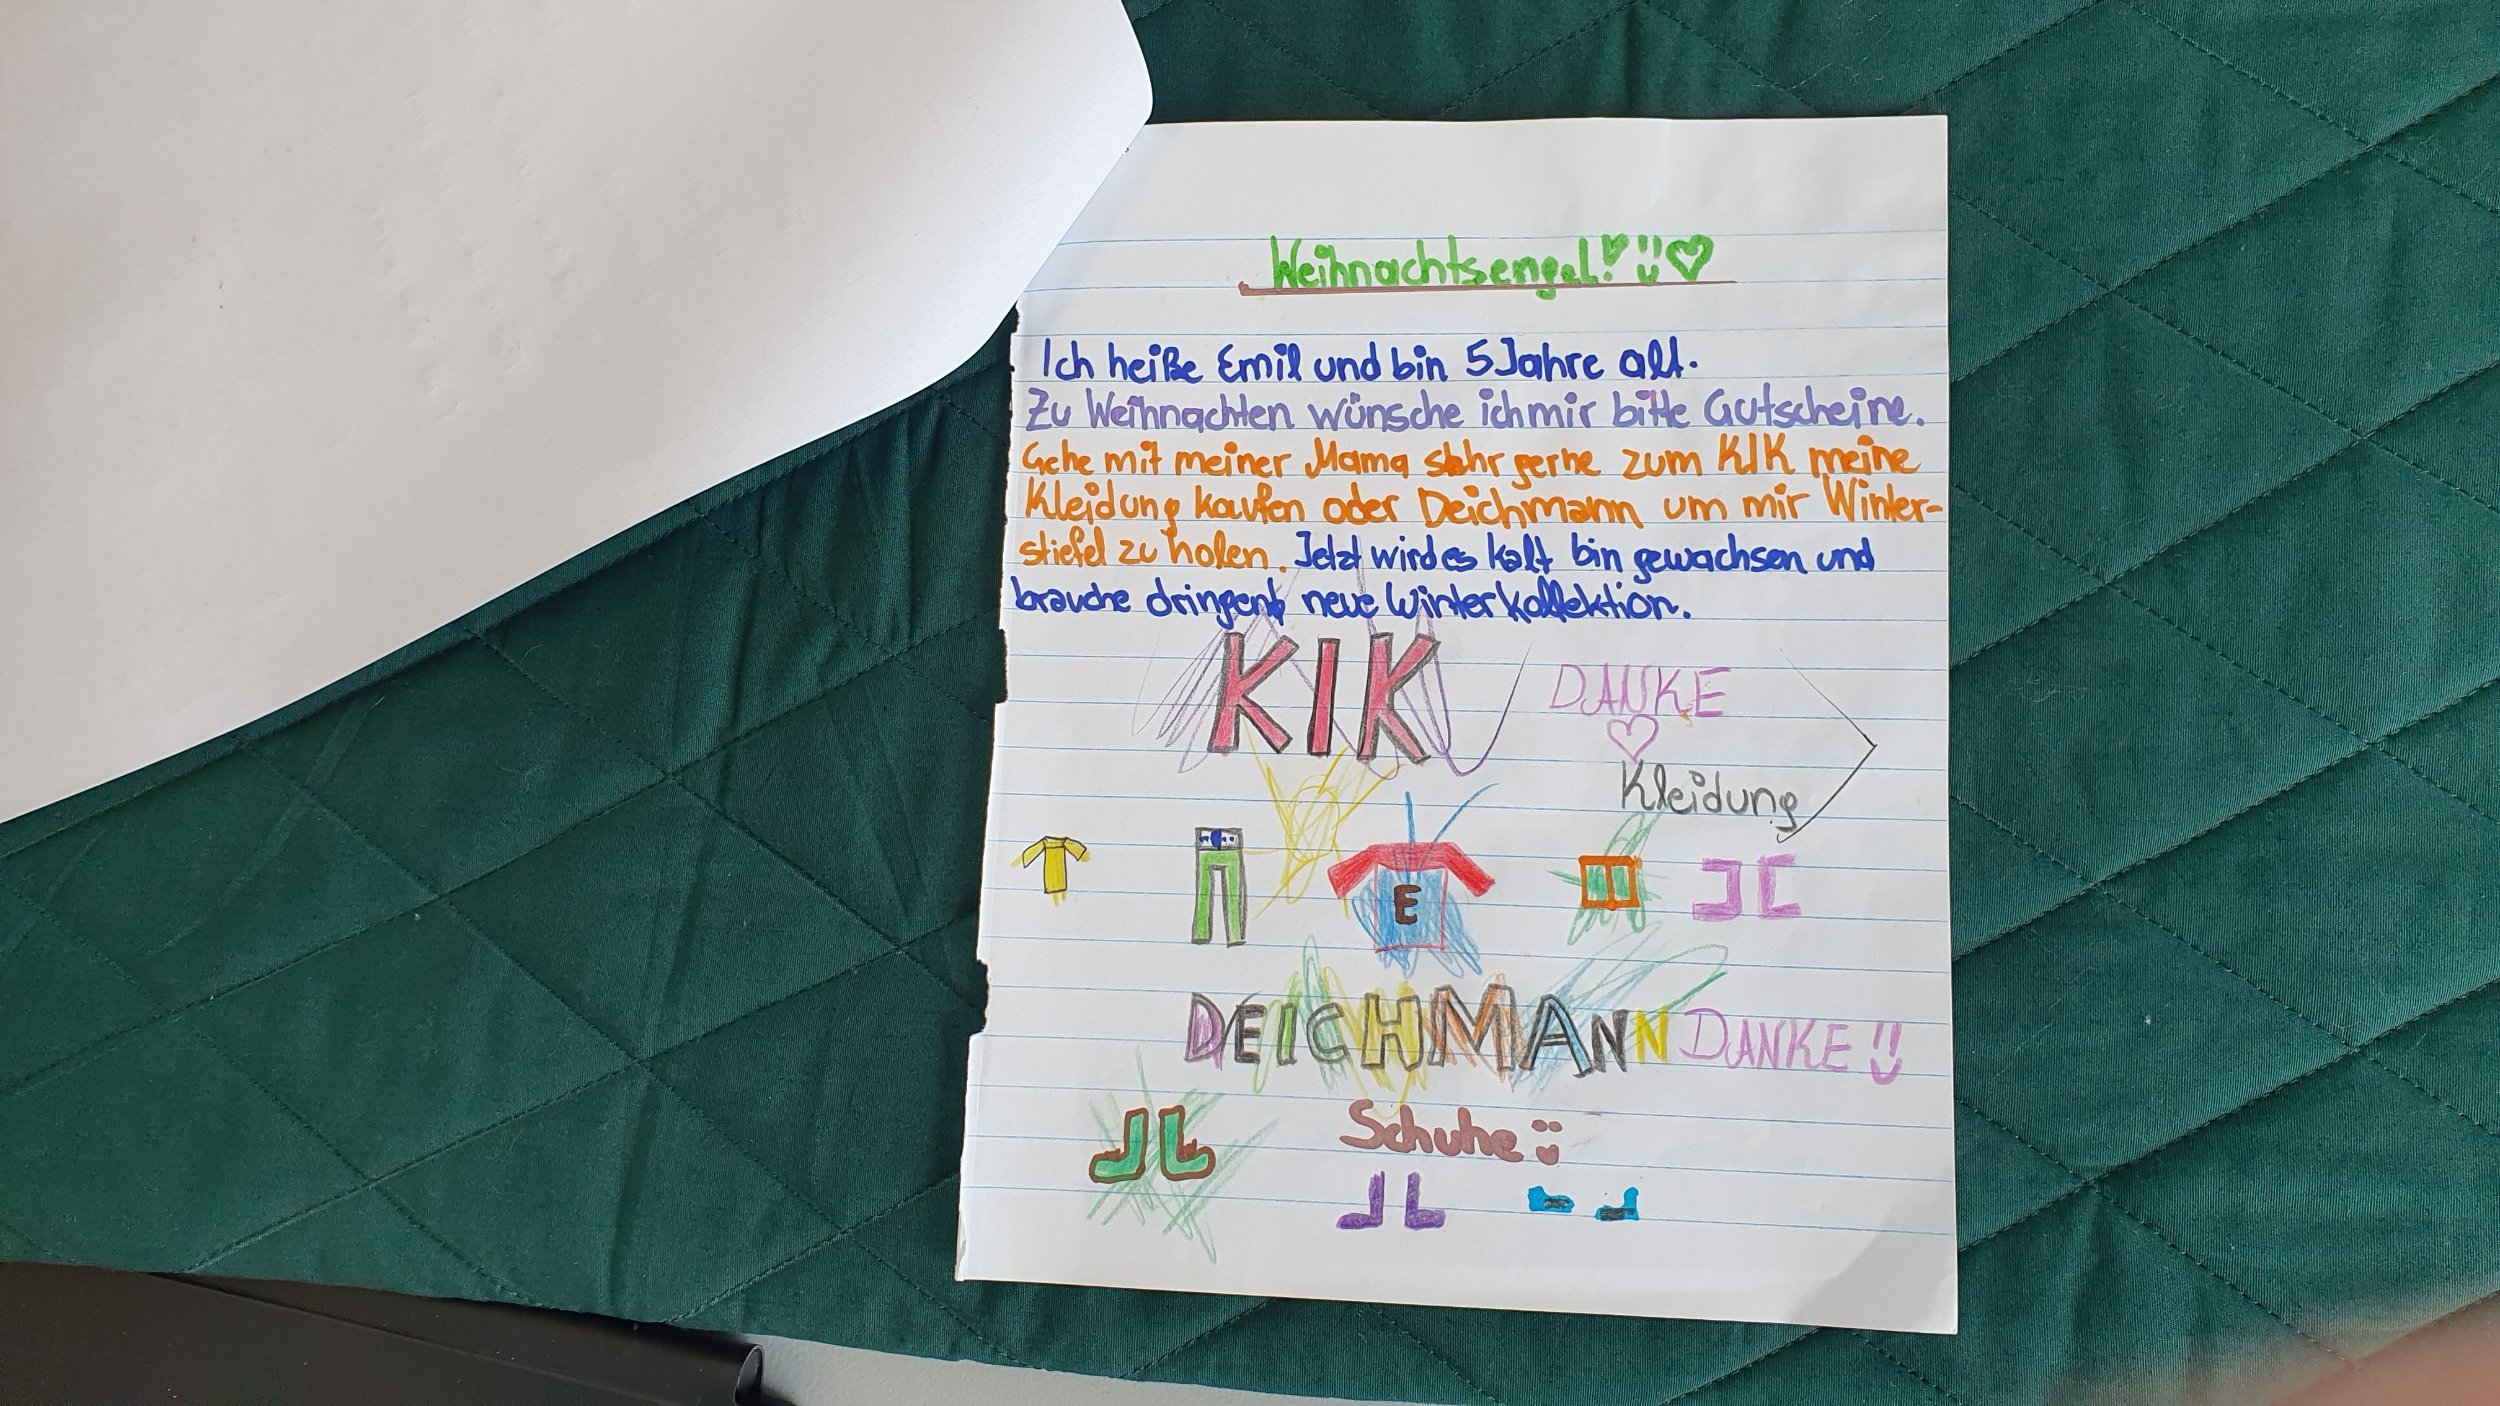 Weihnachtsengel!
Ich heiße Emil und bin 5 Jahre alt.
Zu Weihnachten wünsche ich mir bitte Gutscheine.
Gehe mit meiner Mama sehr gerne zum KIK meine
Kleidung kaufen oder Deichmann um mir Winter-
stiefel zu holen. Jetzt wird es kalt bin gewachsen und
brauche dringend neue Winterkollektion.
KIK DANKE
Kleidung
E
DEICHMANN DANKE!!
Schuhe